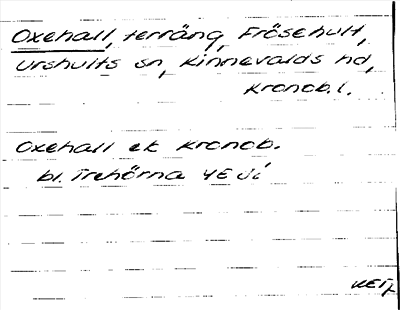 Oxehall, terräng, Fråsehult,
Urshults sn, Kinnevalds hd,
Kronob. l.
Oxehall ek Kronob.
bl. Trehörna 4E